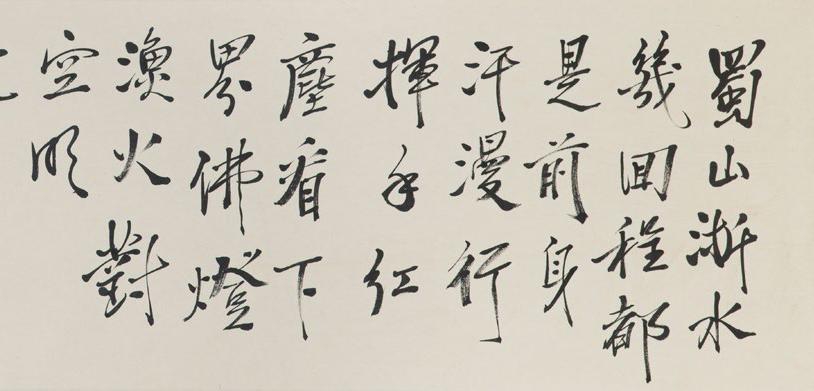 蜀山浙水
幾回程都
是前身
汗漫行
揮手紅
塵看下
界佛燈
漁火對
空明